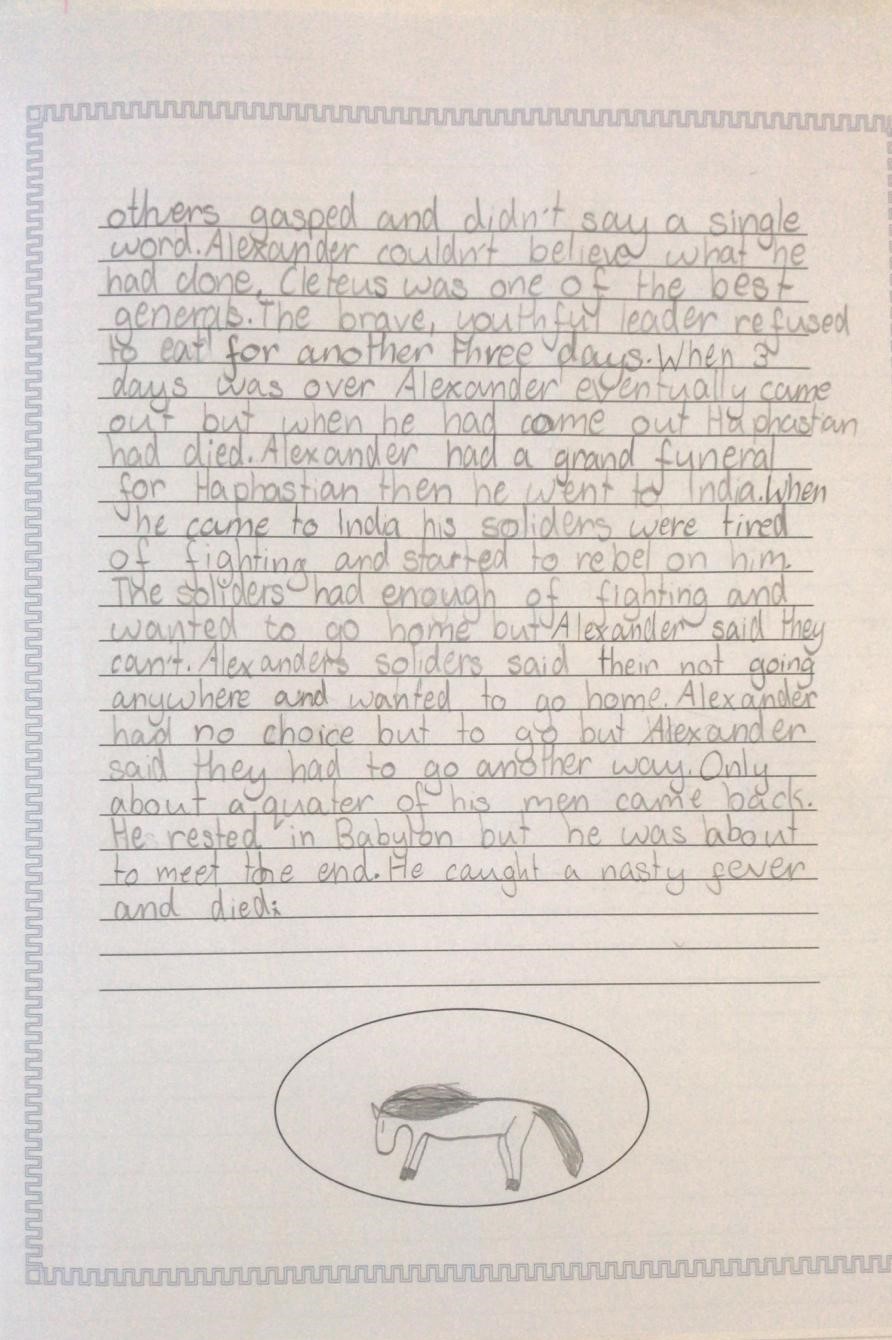 others gasped and didn't say a single
word. Alexander couldn't believe what he
had done, Cleteus was one of the best
generals. The brave, youthful leader refused
to eat for another three days. When 3
days was over Alexander eventually came
out but when he had come out Haphastian
had died. Alexander had a grand funeral
for Haphastian then he went to India. When
he came to India his soliders were tired
of fighting and started to rebel on him.
The soliders had enough of fighting and
wanted to go home but Alexander said they
can't. Alexanders soliders said their not going
anywhere and wanted to go home. Alexander
had no choice but to go but Alexander
said they had to go another way. Only
about a quater of his men came back.
He rested in Babylon but he was about
to meet the end. He caught a nasty fever
and died.